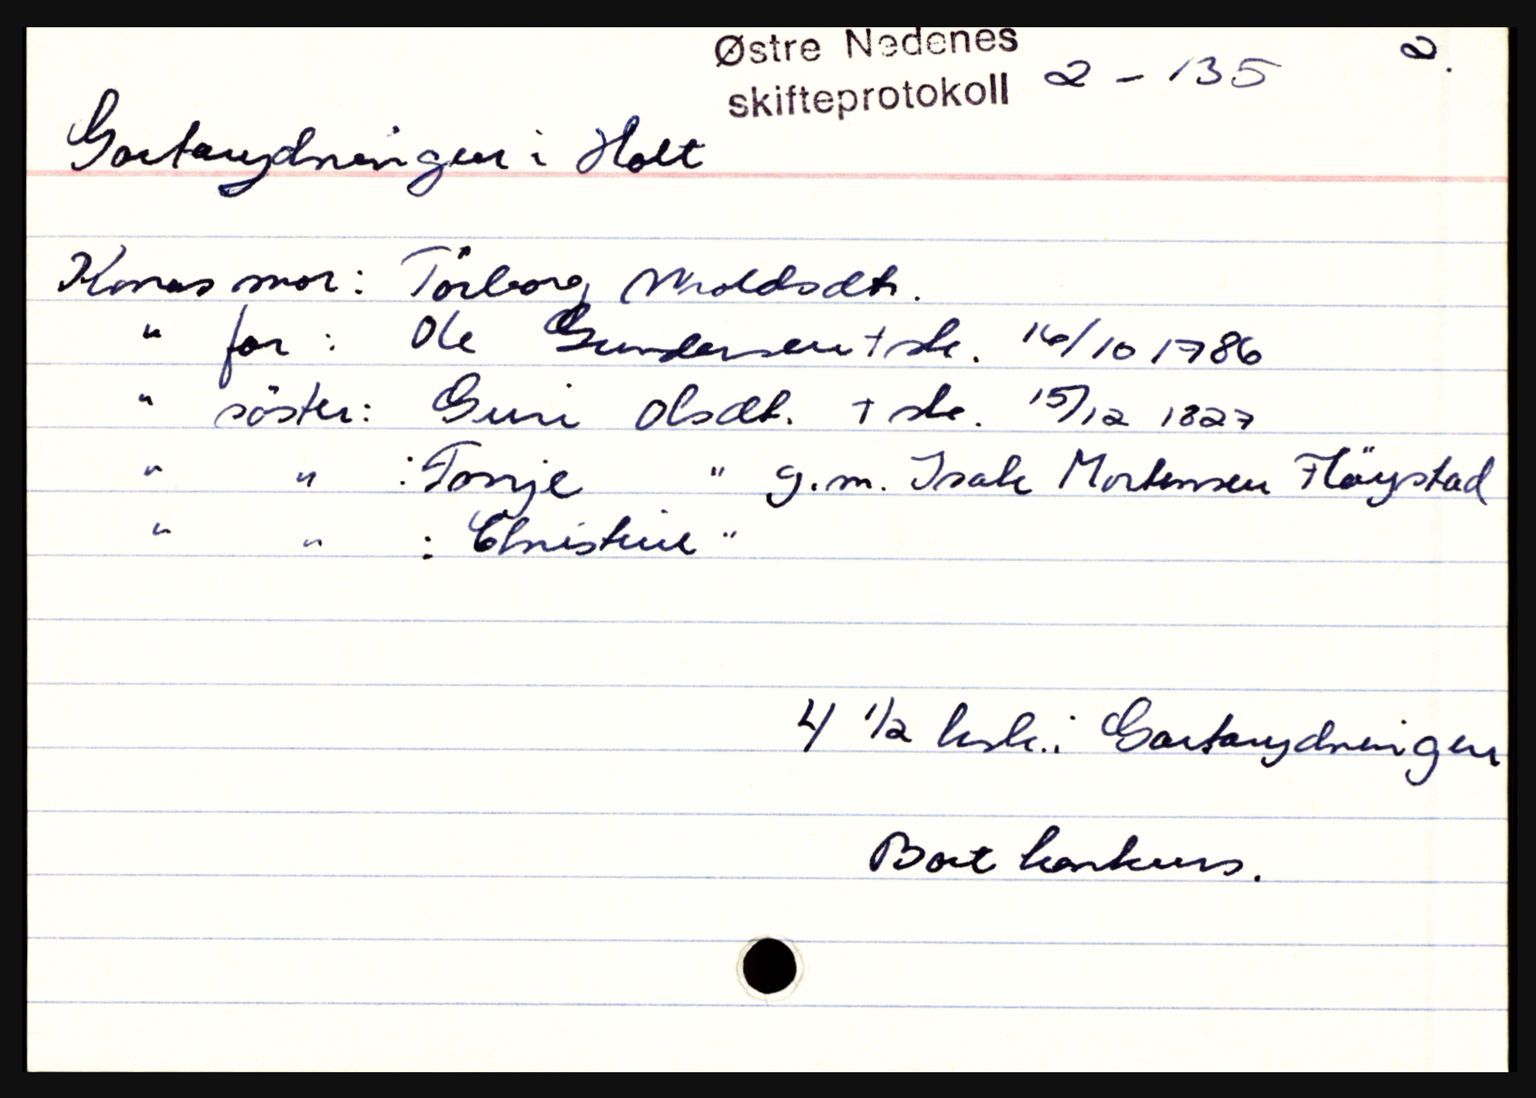 Østre Nedenes 2.
skifteprotokoll 2 - 135
Gartarydningen i Holt
Konas mor: Törborg Aroldsdtr.
" far : Ole Gundersen + sk. 16/10 1786
" söster: Guri Olsdt. + sk. 15/12 1827
" " : Tonje " g.m. Isak Mortensen Flöystad
" " : Christine "
4 1/2 ksk. i Gartarydningen
Boet konkurs.